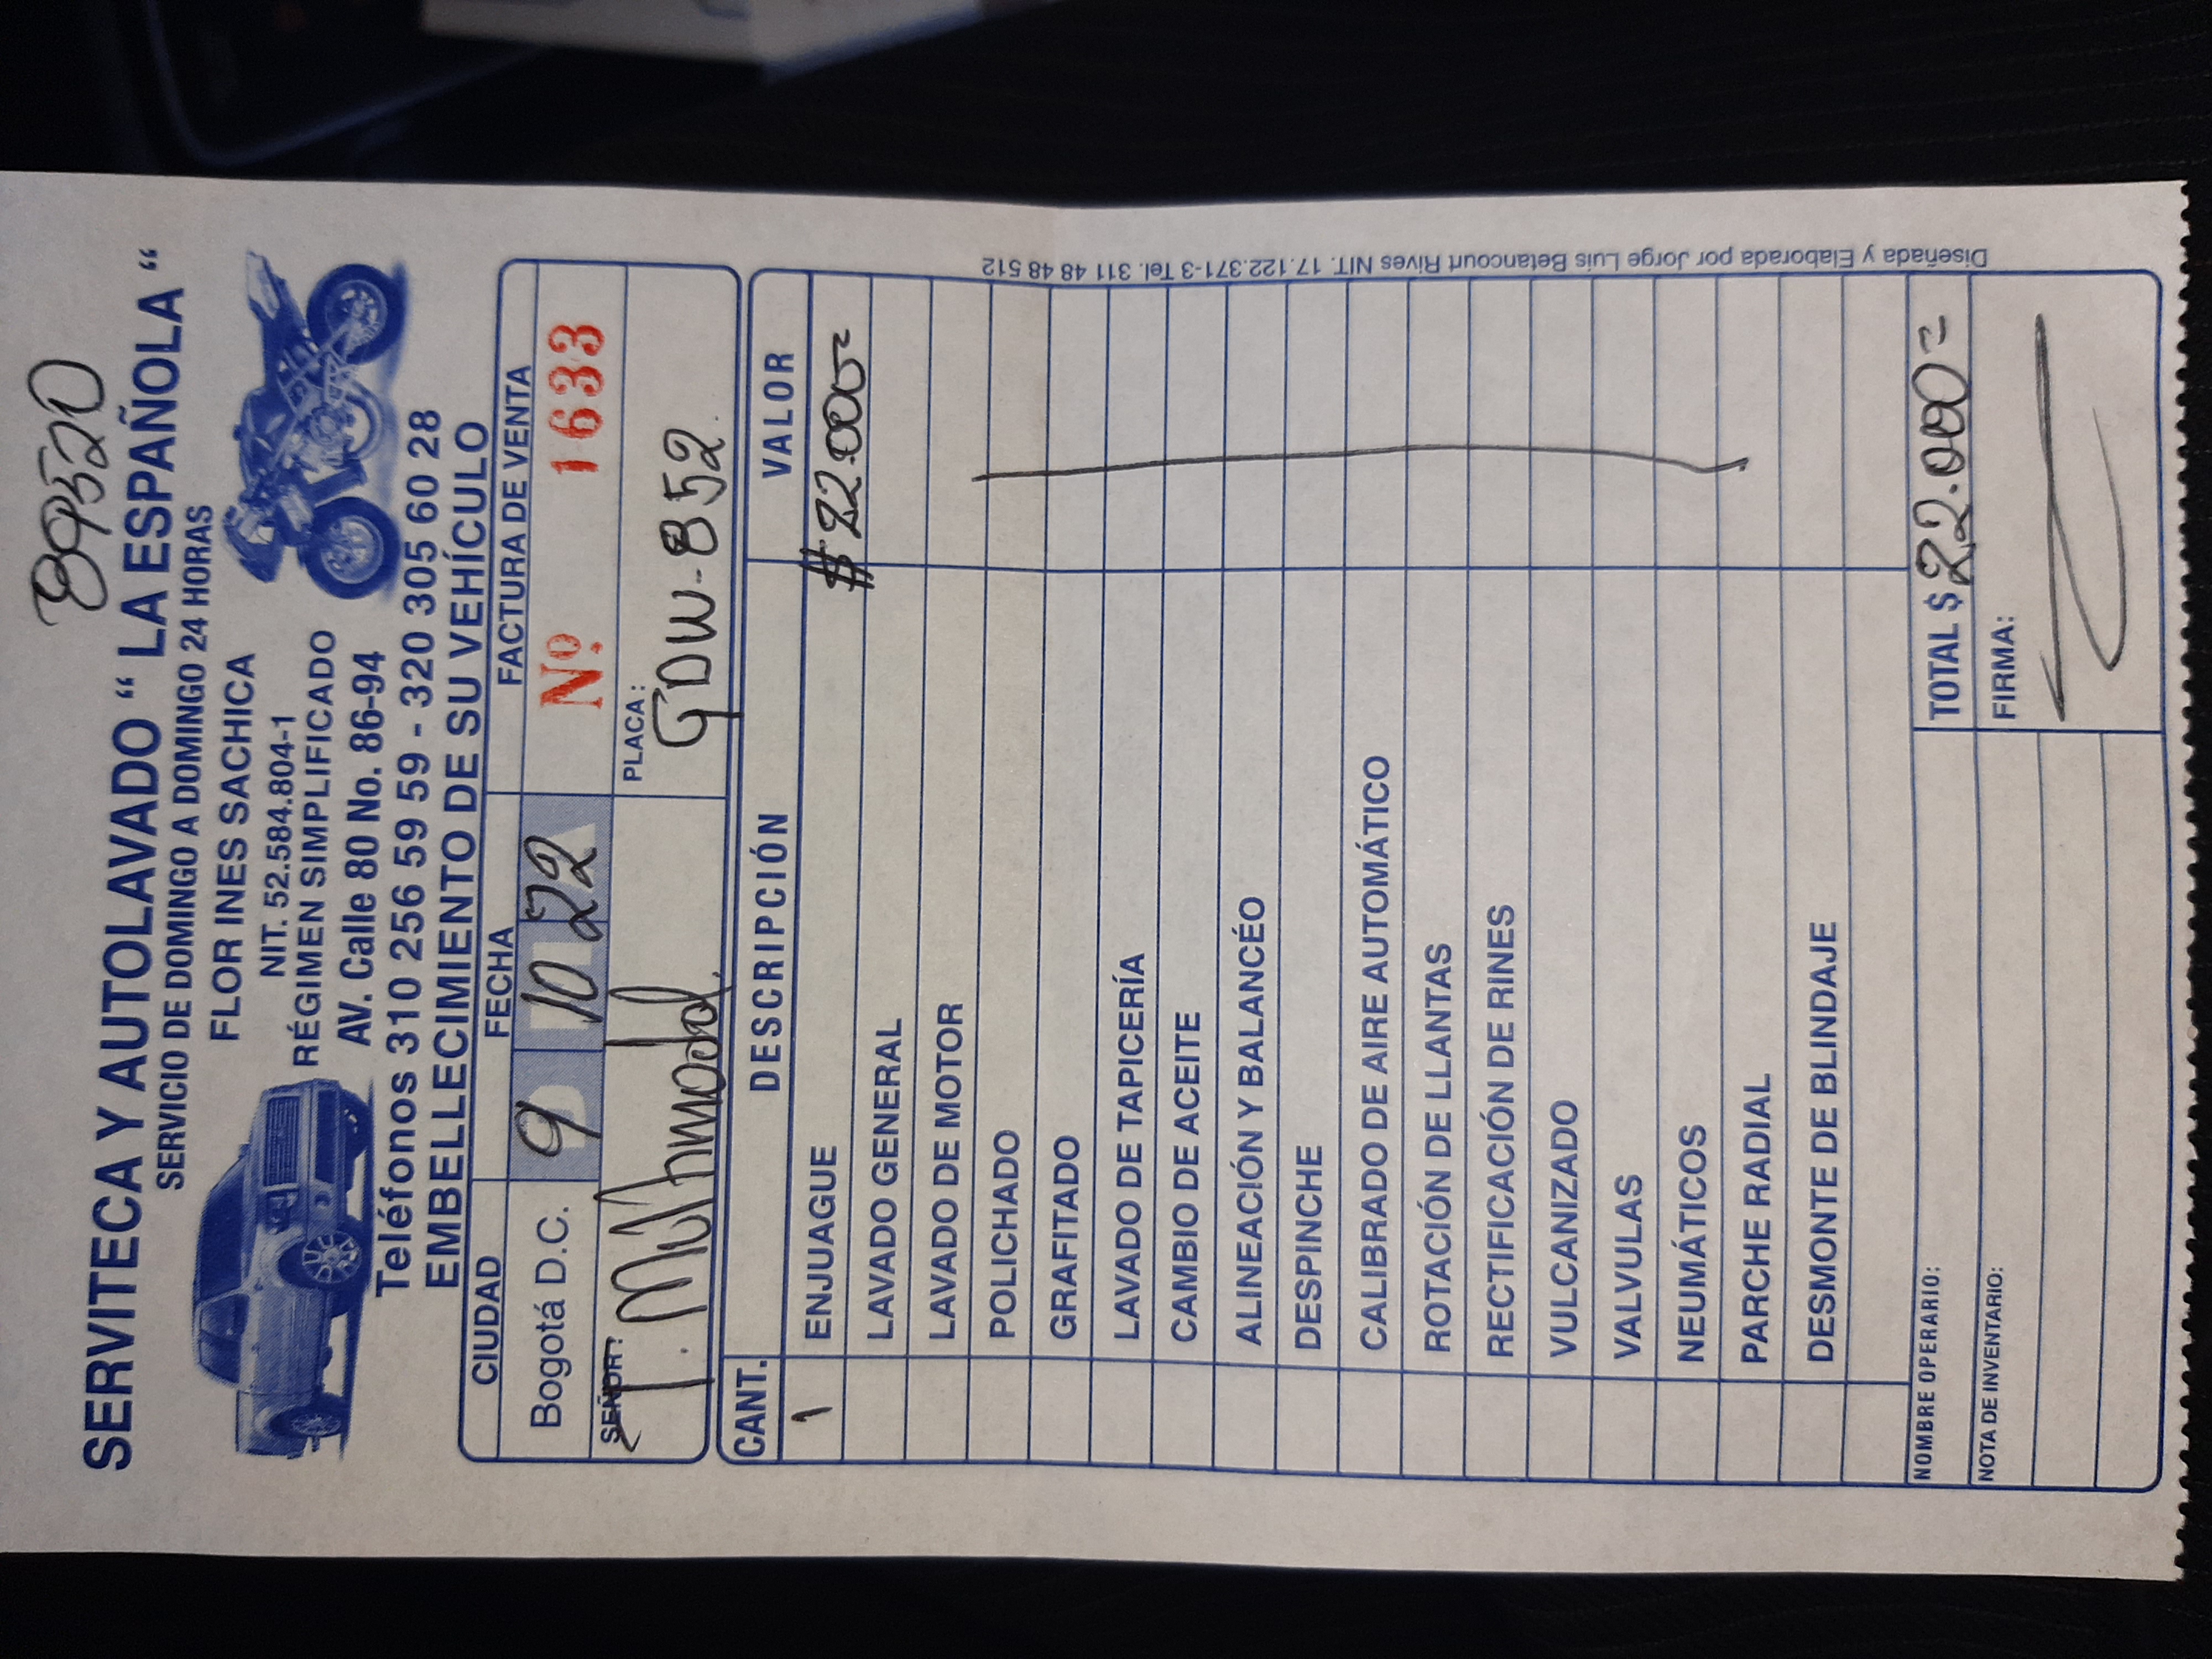 89520
SERVITECA Y AUTOLAVADO “ LA ESPAÑOLA “
SERVICIO DE DOMINGO A DOMINGO 24 HORAS
FLOR INES SACHICA
NIT. 52.584.804-1
RÉGIMEN SIMPLIFICADO
AV. Calle 80 No. 86-94
Teléfonos 310 256 59 59 - 320 305 60 28
EMBELLECIMIENTO DE SU VEHÍCULO
CIUDAD FECHA FACTURA DE VENTA
Bogotá D.C. 9 10 22 Nº 1633
SEÑOR: T. Mulhmodal PLACA: GDW-852
CANT. DESCRIPCIÓN VALOR
1 ENJUAGUE $22.000=
LAVADO GENERAL
LAVADO DE MOTOR
POLICHADO
GRAFITADO
LAVADO DE TAPICERÍA
CAMBIO DE ACEITE
ALINEACIÓN Y BALANCÉO
DESPINCHE
CALIBRADO DE AIRE AUTOMÁTICO
ROTACIÓN DE LLANTAS
RECTIFICACIÓN DE RINES
VULCANIZADO
VALVULAS
NEUMÁTICOS
PARCHE RADIAL
DESMONTE DE BLINDAJE
NOMBRE OPERARIO: TOTAL $ 22.000=
NOTA DE INVENTARIO: FIRMA:
Diseñada y Elaborada por Jorge Luis Betancourt Rives NIT. 17.122.371-3 Tel. 311 48 48 512